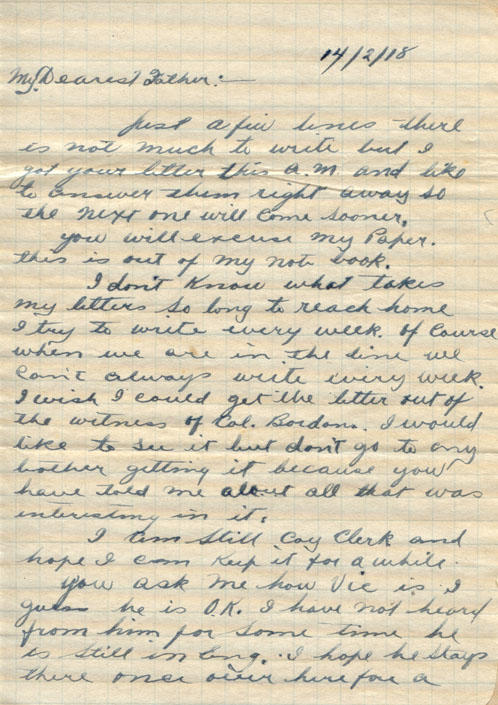 14/2/18
My Dearest Father:—
Just a few lines there
is not much to write but I
got your letter this A.M. and like
to answer them right away so
the next one will come sooner.
you will excuse my Paper.
this is out of my note book.
I don't know what takes
my letters so long to reach home
I try to write every week. Of Course
when we are in the line we
can't always write every week.
I wish I could get the letter out of
the witness of Col. I would
like to see it but don't go to any
bother getting it because you
have told me about all that was
interesting in it.
I am Still Coy Clerk and
hope I can Keep it for a while.
you ask me how Vic is. I
guess he is O.K. I have not heard
from him for some time he
is still in Eng. I hope he stays
there once over here for a